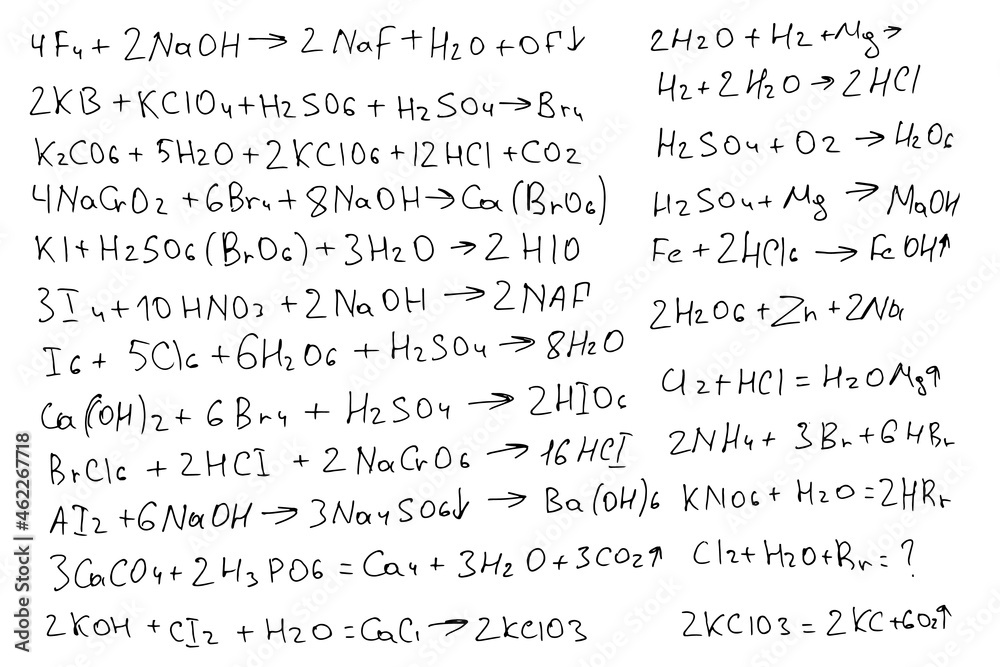 4F₄ + 2NaOH → 2NaF + H₂O + OF↓
2KB + KClO₄ + H₂SO₆ + H₂SO₄ → Br₄
K₂CO₆ + 5H₂O + 2KClO₆ + 12HCl + CO₂
4NaCrO₂ + 6Br₄ + 8NaOH → Ca(BrO₆)
KI + H₂SO₆(BrO₆) + 3H₂O → 2HIO
3I₄ + 10HNO₃ + 2NaOH → 2NAF
I₆ + 5Cl₆ + 6H₂O₆ + H₂SO₄ → 8H₂O
Ca(OH)₂ + 6Br₄ + H₂SO₄ → 2HIO₆
BrCl₆ + 2HCI + 2NaCrO₆ → 16HCI
AI₂ + 6NaOH → 3Na₄SO₆↓ → Ba(OH)₆
3CaCO₄ + 2H₃PO₆ = Ca₄ + 3H₂O + 3CO₂↑
2KOH + CI₂ + H₂O = CaCl → 2KClO3
2H₂O + H₂ + Mg →
H₂ + 2H₂O → 2HCl
H₂SO₄ + O₂ → H₂O₆
H₂SO₄ + Mg → MaOH
Fe + 2HCl₆ → FeOH↑
2H₂O₆ + Zn + 2Na
Cl₂ + HCl = H₂OMg↑
2NH₄ + 3Br + 6HBr
KNO₆ + H₂O = 2HBr
Cl₂ + H₂O + Br = ?
2KClO3 = 2KC + 6O₂↑
Adobe Stock | #462267718
Adobe Stock